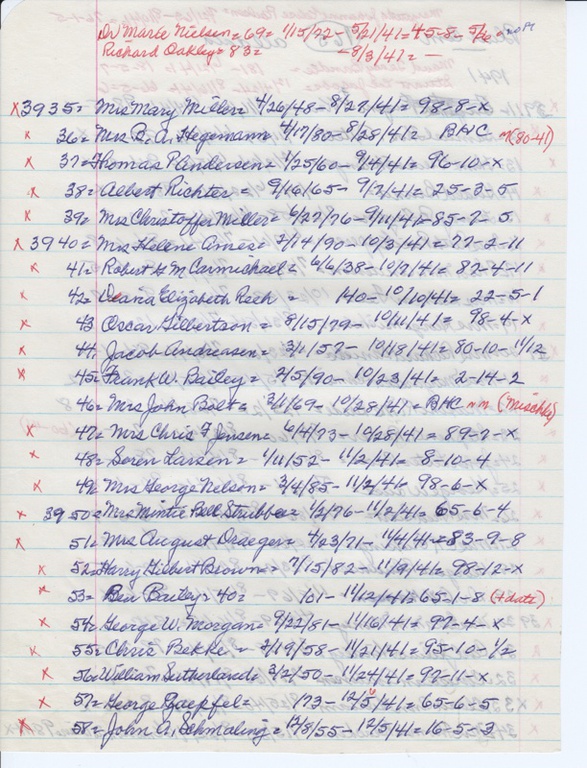 Dr Marie Nielsen = 69 = 1/15/72 - 5/21/41 = 45-8- 5/6 = no M
Richard Oakley = 83 = -8/3/41 = -
1941
x 3935 = Mrs Mary Miller = 4/26/48 - 8/27/41 = 98-8-x
x 36 = Mrs R. A. Hegemann = 4/17/80 - 8/28/41 = BHC (80-41)
x 37 = Thomas P. Andersen = 1/25/60 - 9/4/41 = 96-10-x
x 38 = Albert Richter = 9/16/65 - 9/7/41 = 25-3-5
x 39 = Mrs Christoffer Miller = 6/27/76 - 9/11/41 = 85-7-5
x 3940 = Mrs Helene Ames = 7/14/90 - 10/3/41 = 77-2-11
x 41 = Robert H. McCarmichael = 6/6/38 - 10/7/41 = 87-4-11
x 42 = Deana Elizabeth Rech = 140 - 10/10/41 = 22-5-1
x 43 Oscar Gilbertson = 8/15/79 - 10/11/41 = 98-4-x
x 44 Jacob Andreasen = 3/1/57 - 10/18/41 = 80-10-11/12
x 45 = Frank W. Bailey = 2/5/90 - 10/23/41 = 2-14-2
46 = Mrs John Bolt = 3/1/69 - 10/28/41 = BHC nm (Mischler)
x 47 = Mrs Chris F Jensen = 6/4/73 - 10/28/41 = 89-7-x
x 48 = Soren Larsen = 1/11/52 - 11/2/41 = 8-10-4
x 49 Mrs George Nelson = 3/4/85 - 11/2/41 = 98-6-x
x 3950 = Mrs Mintie Bell Strubbe = 1/2/76 - 11/2/41 = 65-6-4
x 51 = Mrs August Draeger = 4/23/71 - 11/4/41 = 83-9-8
x 52 = Harry Hilbert Brown = 7/15/82 - 11/9/41 = 98-12-x
x 53 = Ben Bailey = 40 = 101 - 11/12/41 = 65-1-8 (+date)
x 54 = George W. Morgan = 9/22/81 - 11/16/41 = 97-4-x
x 55 = Chris Bekke = 2/19/58 - 11/21/41 = 95-10-1/2
x 56 = William Sutherland = 3/2/50 - 11/24/41 = 97-11-x
x 57 = George Goepfel = 173 - 12/5/41 = 65-6-5
x 58 = John A. Schmaling = 12/8/55 - 12/5/41 = 16-5-3